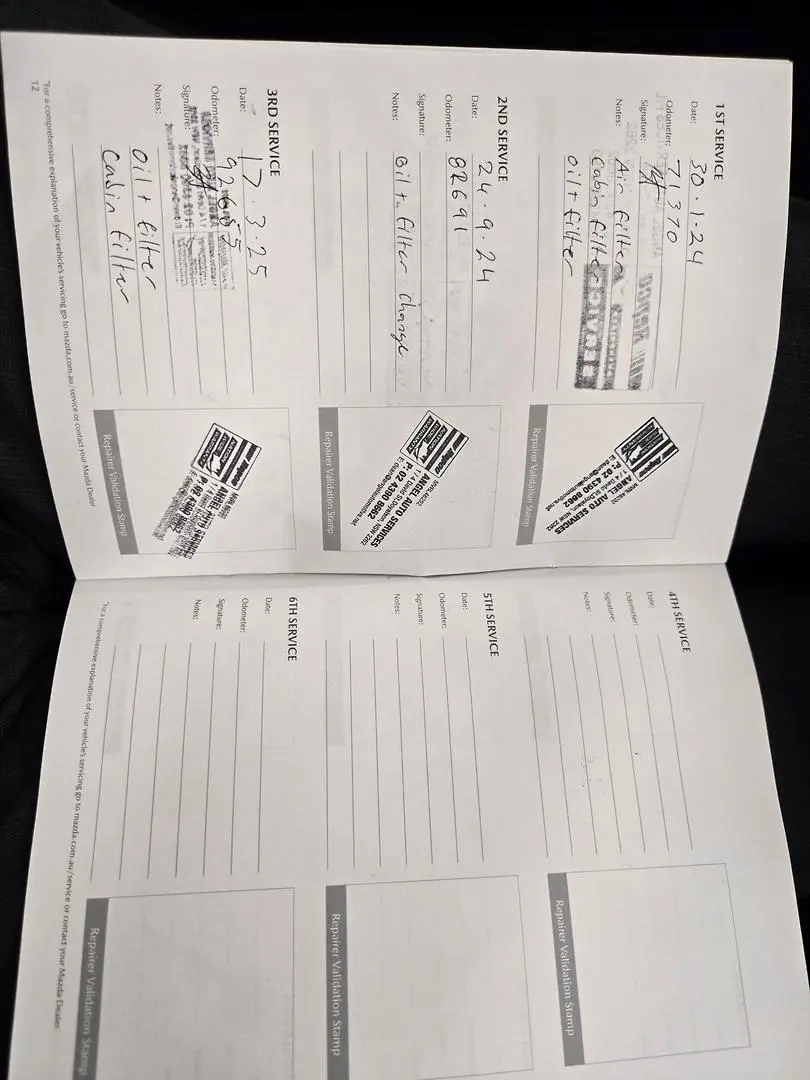 1ST SERVICE
Date: 30.1.24
Odometer: 71370
Signature:
Notes: Air filter
Cabin filter
oil + filter
MVRL 46202
ANGEL AUTO SERVICES
1/4 David St, Doyalson, NSW 2262
P: 02 4390 8662
Repairer Validation Stamp
2ND SERVICE
Date: 24.9.24
Odometer: 82691
Signature:
Notes: Oil + filter change
MVRL 46202
ANGEL AUTO SERVICES
1/4 David St, Doyalson, NSW 2262
P: 02 4390 8662
Repairer Validation Stamp
3RD SERVICE
Date: 17.3.25
Odometer: 92655
Signature:
Notes:
Oil + filter
Cabin filter
ANGEL AUTO
P: 02 4390 8662
Repairer Validation Stamp
*For a comprehensive explanation of your vehicle's servicing go to mazda.com.au/service or contact your Mazda Dealer
12
4TH SERVICE
Date:
Odometer:
Signature:
Notes:
Repairer Validation Stamp
5TH SERVICE
Date:
Odometer:
Signature:
Notes:
Repairer Validation Stamp
6TH SERVICE
Date:
Odometer:
Signature:
Notes:
Repairer Validation Stamp
*For a comprehensive explanation of your vehicle's servicing go to mazda.com.au/service or contact your Mazda Dealer